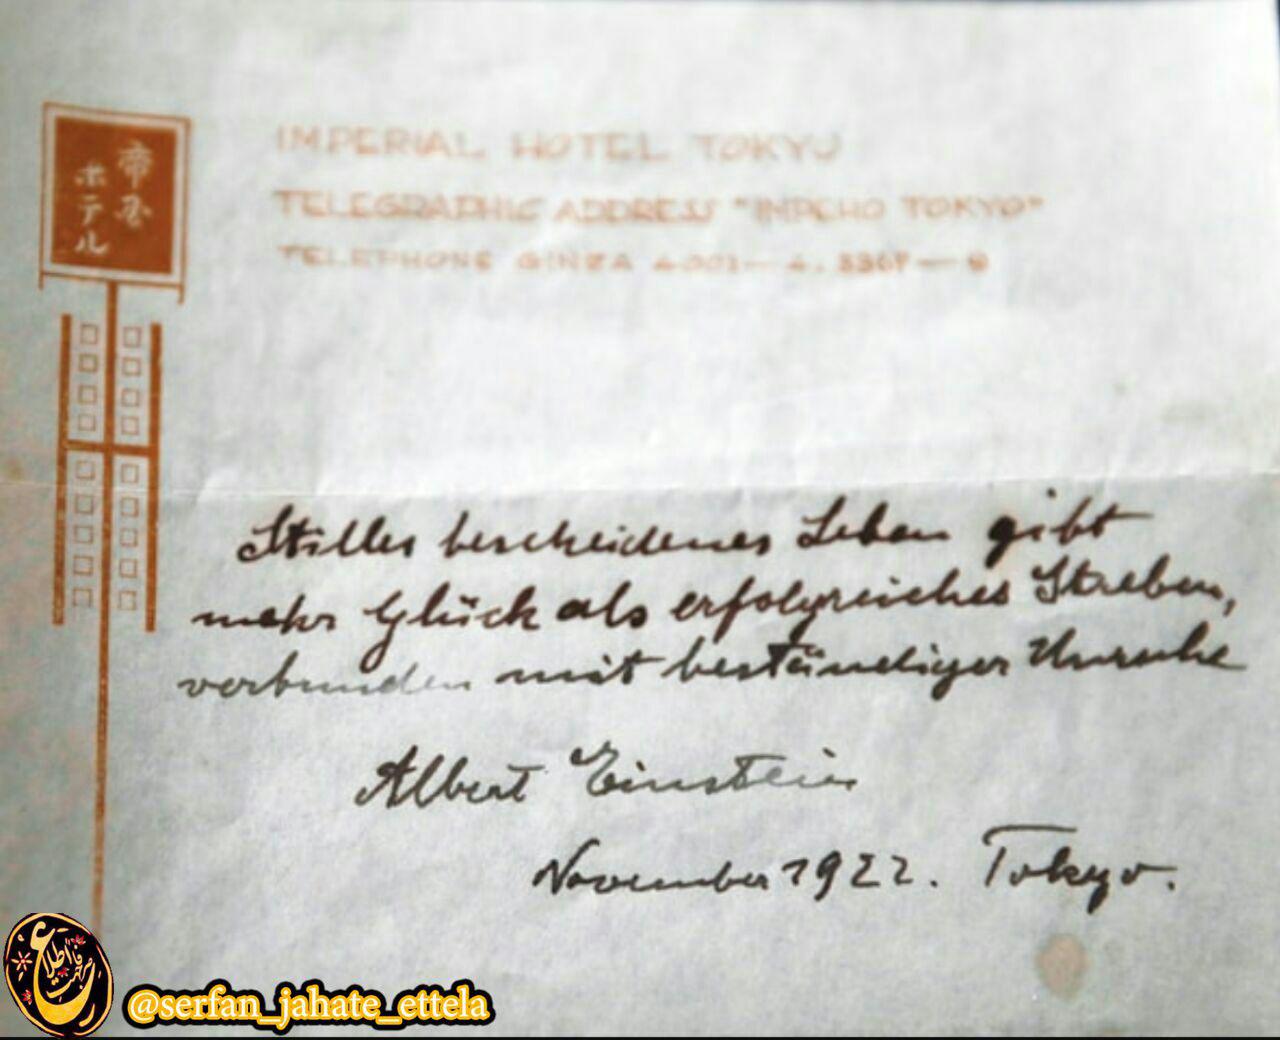 帝国
ホテル
IMPERIAL HOTEL TOKYO
TELEGRAPHIC ADDRESS "IMPEHO TOKYO"
TELEPHONE GINZA
Stilles bescheidenes Leben gibt
mehr Glück als erfolgreiches Streben,
verbunden mit beständiger Unruhe
Albert Einstein
November 1922. Tokyo.
صرفا جهت اطلاع
@serfan_jahate_ettela